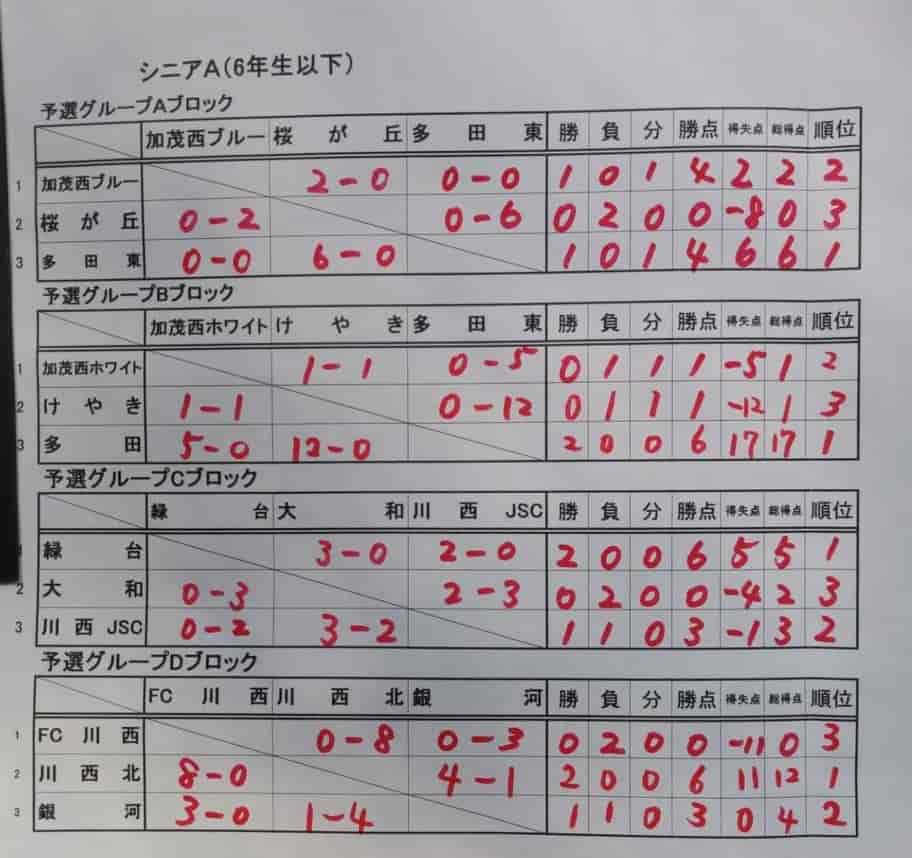 シニアA(6年生以下)
予選グループAブロック
加茂西ブルー 桜が丘 多田東 勝 負 分 勝点 得失点 総得点 順位
1 加茂西ブルー 2-0 0-0 1 0 1 4 2 2 2
2 桜が丘 0-2 0-6 0 2 0 0 -8 0 3
3 多田東 0-0 6-0 1 0 1 4 6 6 1
予選グループBブロック
加茂西ホワイト けやき 多田東 勝 負 分 勝点 得失点 総得点 順位
1 加茂西ホワイト 1-1 0-5 0 1 1 1 -5 1 2
2 けやき 1-1 0-12 0 1 1 1 -12 1 3
3 多田 5-0 12-0 2 0 0 6 17 17 1
予選グループCブロック
緑台 大和 川西JSC 勝 負 分 勝点 得失点 総得点 順位
緑台 3-0 2-0 2 0 0 6 5 5 1
2 大和 0-3 2-3 0 2 0 0 -4 2 3
3 川西JSC 0-2 3-2 1 1 0 3 -1 3 2
予選グループDブロック
FC川西 川西北 銀河 勝 負 分 勝点 得失点 総得点 順位
1 FC川西 0-8 0-3 0 2 0 0 -11 0 3
2 川西北 8-0 4-1 2 0 0 6 11 12 1
3 銀河 3-0 1-4 1 1 0 3 0 4 2